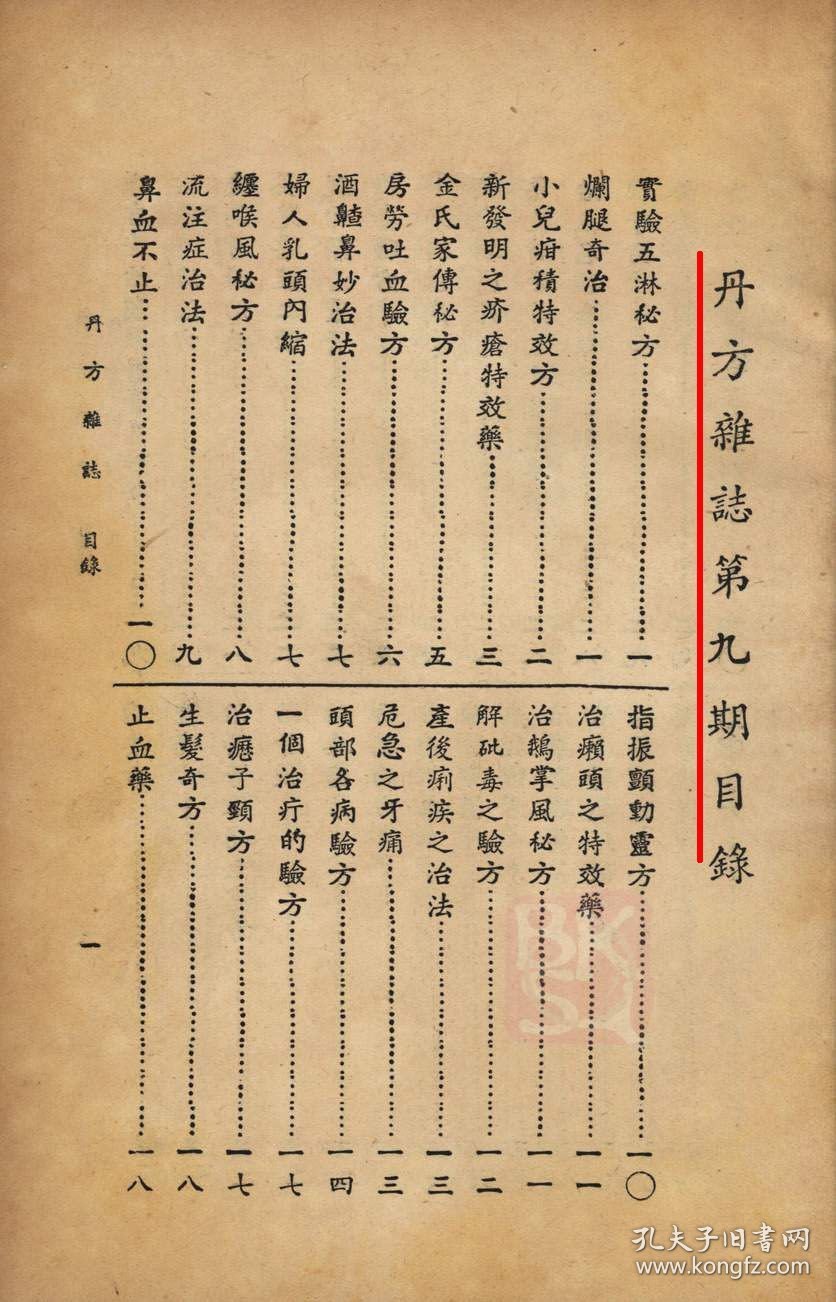 丹方雜誌第九期目錄
實驗五淋秘方………一
爛腿奇治………一
小兒疳積特效方………二
新發明之疥瘡特效藥………三
金氏家傳秘方………五
房勞吐血驗方………六
酒齄鼻妙治法………七
婦人乳頭內縮………七
纏喉風秘方………八
流注症治法………九
鼻血不止………一〇
指振顫動靈方………一〇
治癩頭之特效藥………一一
治鵝掌風秘方………一一
解砒毒之驗方………一二
產後痢疾之治法………一三
危急之牙痛………一三
頭部各病驗方………一四
一個治疔的驗方………一七
治癧子頸方………一七
生髮奇方………一八
止血藥………一八
丹方雜誌 目錄
一
BKSJ
孔夫子旧书网
www.kongfz.com